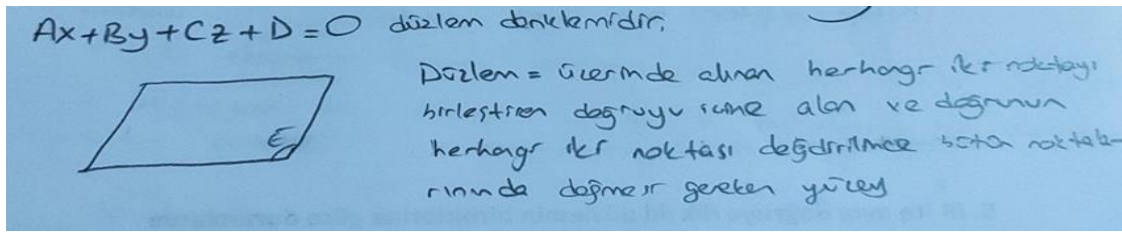 Ax+By+Cz+D=0 düzlem denklemidir.
Düzlem = üzerinde alınan herhangi iki noktayı
birleştiren doğruyu içine alan ve doğrunun
herhangi iki noktası değdirilince bütün noktala-
E
rınında değmesi gereken yüzey